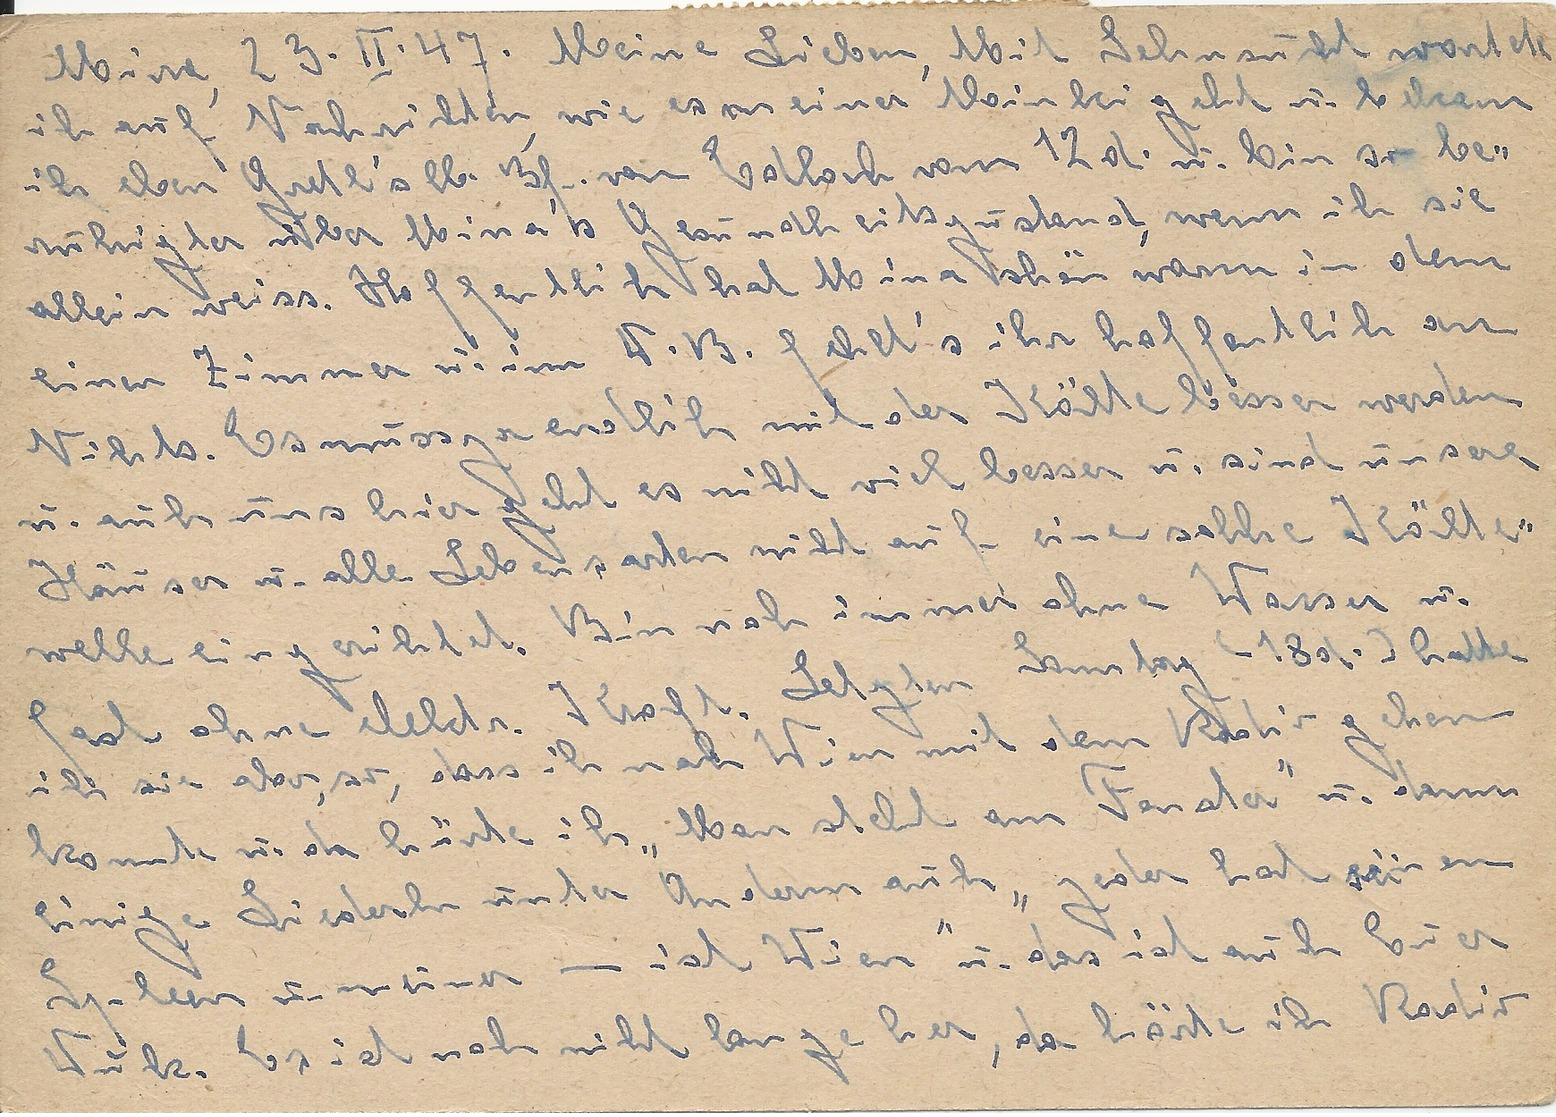 Mira, 23.II.47. Meine Lieben, Mit Sehnsucht wartete
ich auf Nachrichten, wie es meiner Mina bei geht u. bekam
ich eben Gretl's lb. Bf. von Edlach vom 12 d. u. bin so be"
ruhigter über Mina's Gesundheitszustand, wenn ich sie
allein weiss. Hoffentlich hat Mina schön warm in dem
einen Zimmer u. im W.B. fehlt's ihr hoffentlich an
Nichts. Es muss ja endlich mit der Kälte besser werden
u. auch uns hier geht es nicht viel besser u. sind unsere
Häuser u. alle Lebensarten nicht auf eine solche Kälte"
welle eingerichtet. Bin noch immer ohne Wasser u.
fast ohne elektr. Kraft. Letzten Samstag (18d.) hatte
ich sie aber, so, dass ich nach Wien mit dem Radio gehen
konnte u. da hörte ich „Man steht am Fenster" u. dann
einige Liederln unter Anderm auch „jeder hat seinen
Spleen u. meiner — ist Wien" u. das ist auch Euer
Tück. Es ist noch nicht lange her, da hörte ich Radio